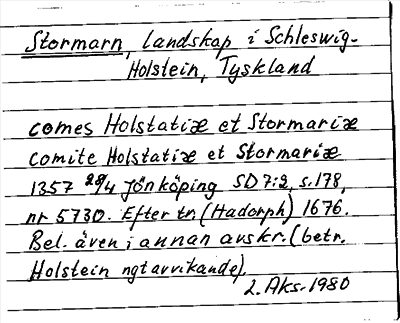 Stormarn, landskap i Schleswig-
Holstein, Tyskland
comes Holstatiæ et Stormariæ
comite Holstatiæ et Stormariæ
1357 28/4 Jönköping SD 7:2, s. 178,
nr 5730. Efter tr. (Hadorph) 1676.
Bel. även i annan avskr. (betr.
Holstein ngt avvikande).
L. Aks. 1980